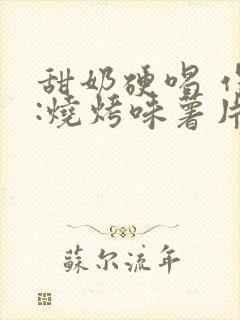 甜奶硬唱
:燒烤味薯片
蘇尔流年